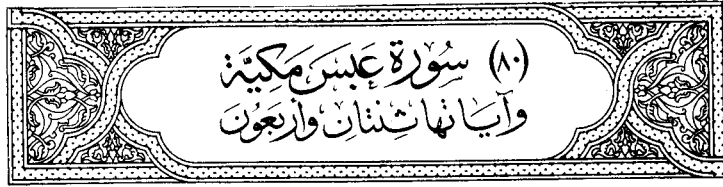 (٨٠) سُورَة عَبَسَ مَكِيَّة
وَآيَاتهَا ثِنتَانِ وَأَربَعُونَ